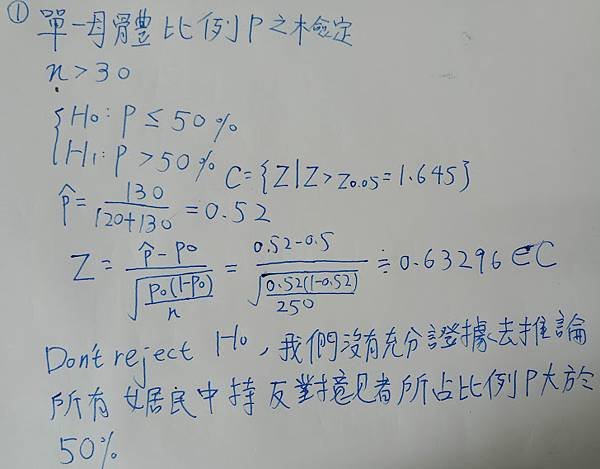 ① 單一母體比例P之檢定
n>30
{H₀: P ≤ 50%
H₁: P > 50% C={Z|Z>Z₀.₀₅=1.645}
p̂ = 130/(120+130) = 0.52
Z = (p̂-p₀)/√(p₀(1-p₀)/n) = (0.52-0.5)/√(0.52(1-0.52)/250) ≑ 0.63296 ∈ C
Don't reject H₀, 我們沒有充分證據去推論
所有女居民中持反對意見者所占比例P大於
50%